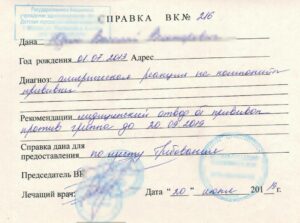 СПРАВКА ВК № 216
Дана
Год рождения 01.07.2017 Адрес
Диагноз: аллергическая реакция на компоненты
прививки
Рекомендации медицинский отвод от прививок
против гриппа до 20.09.2019
Справка дана для
предоставления по месту требования
Председатель ВК
Лечащий врач: Дата "20" июля 2019 г.